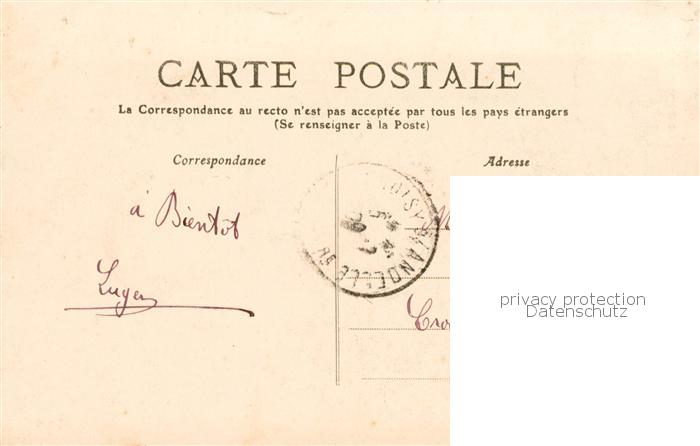 CARTE POSTALE
La Correspondance au recto n'est pas acceptée par tous les pays étrangers
(Se renseigner à la Poste)
Correspondance
Adresse
à Bientôt
M
Cro
privacy protection
Datenschutz